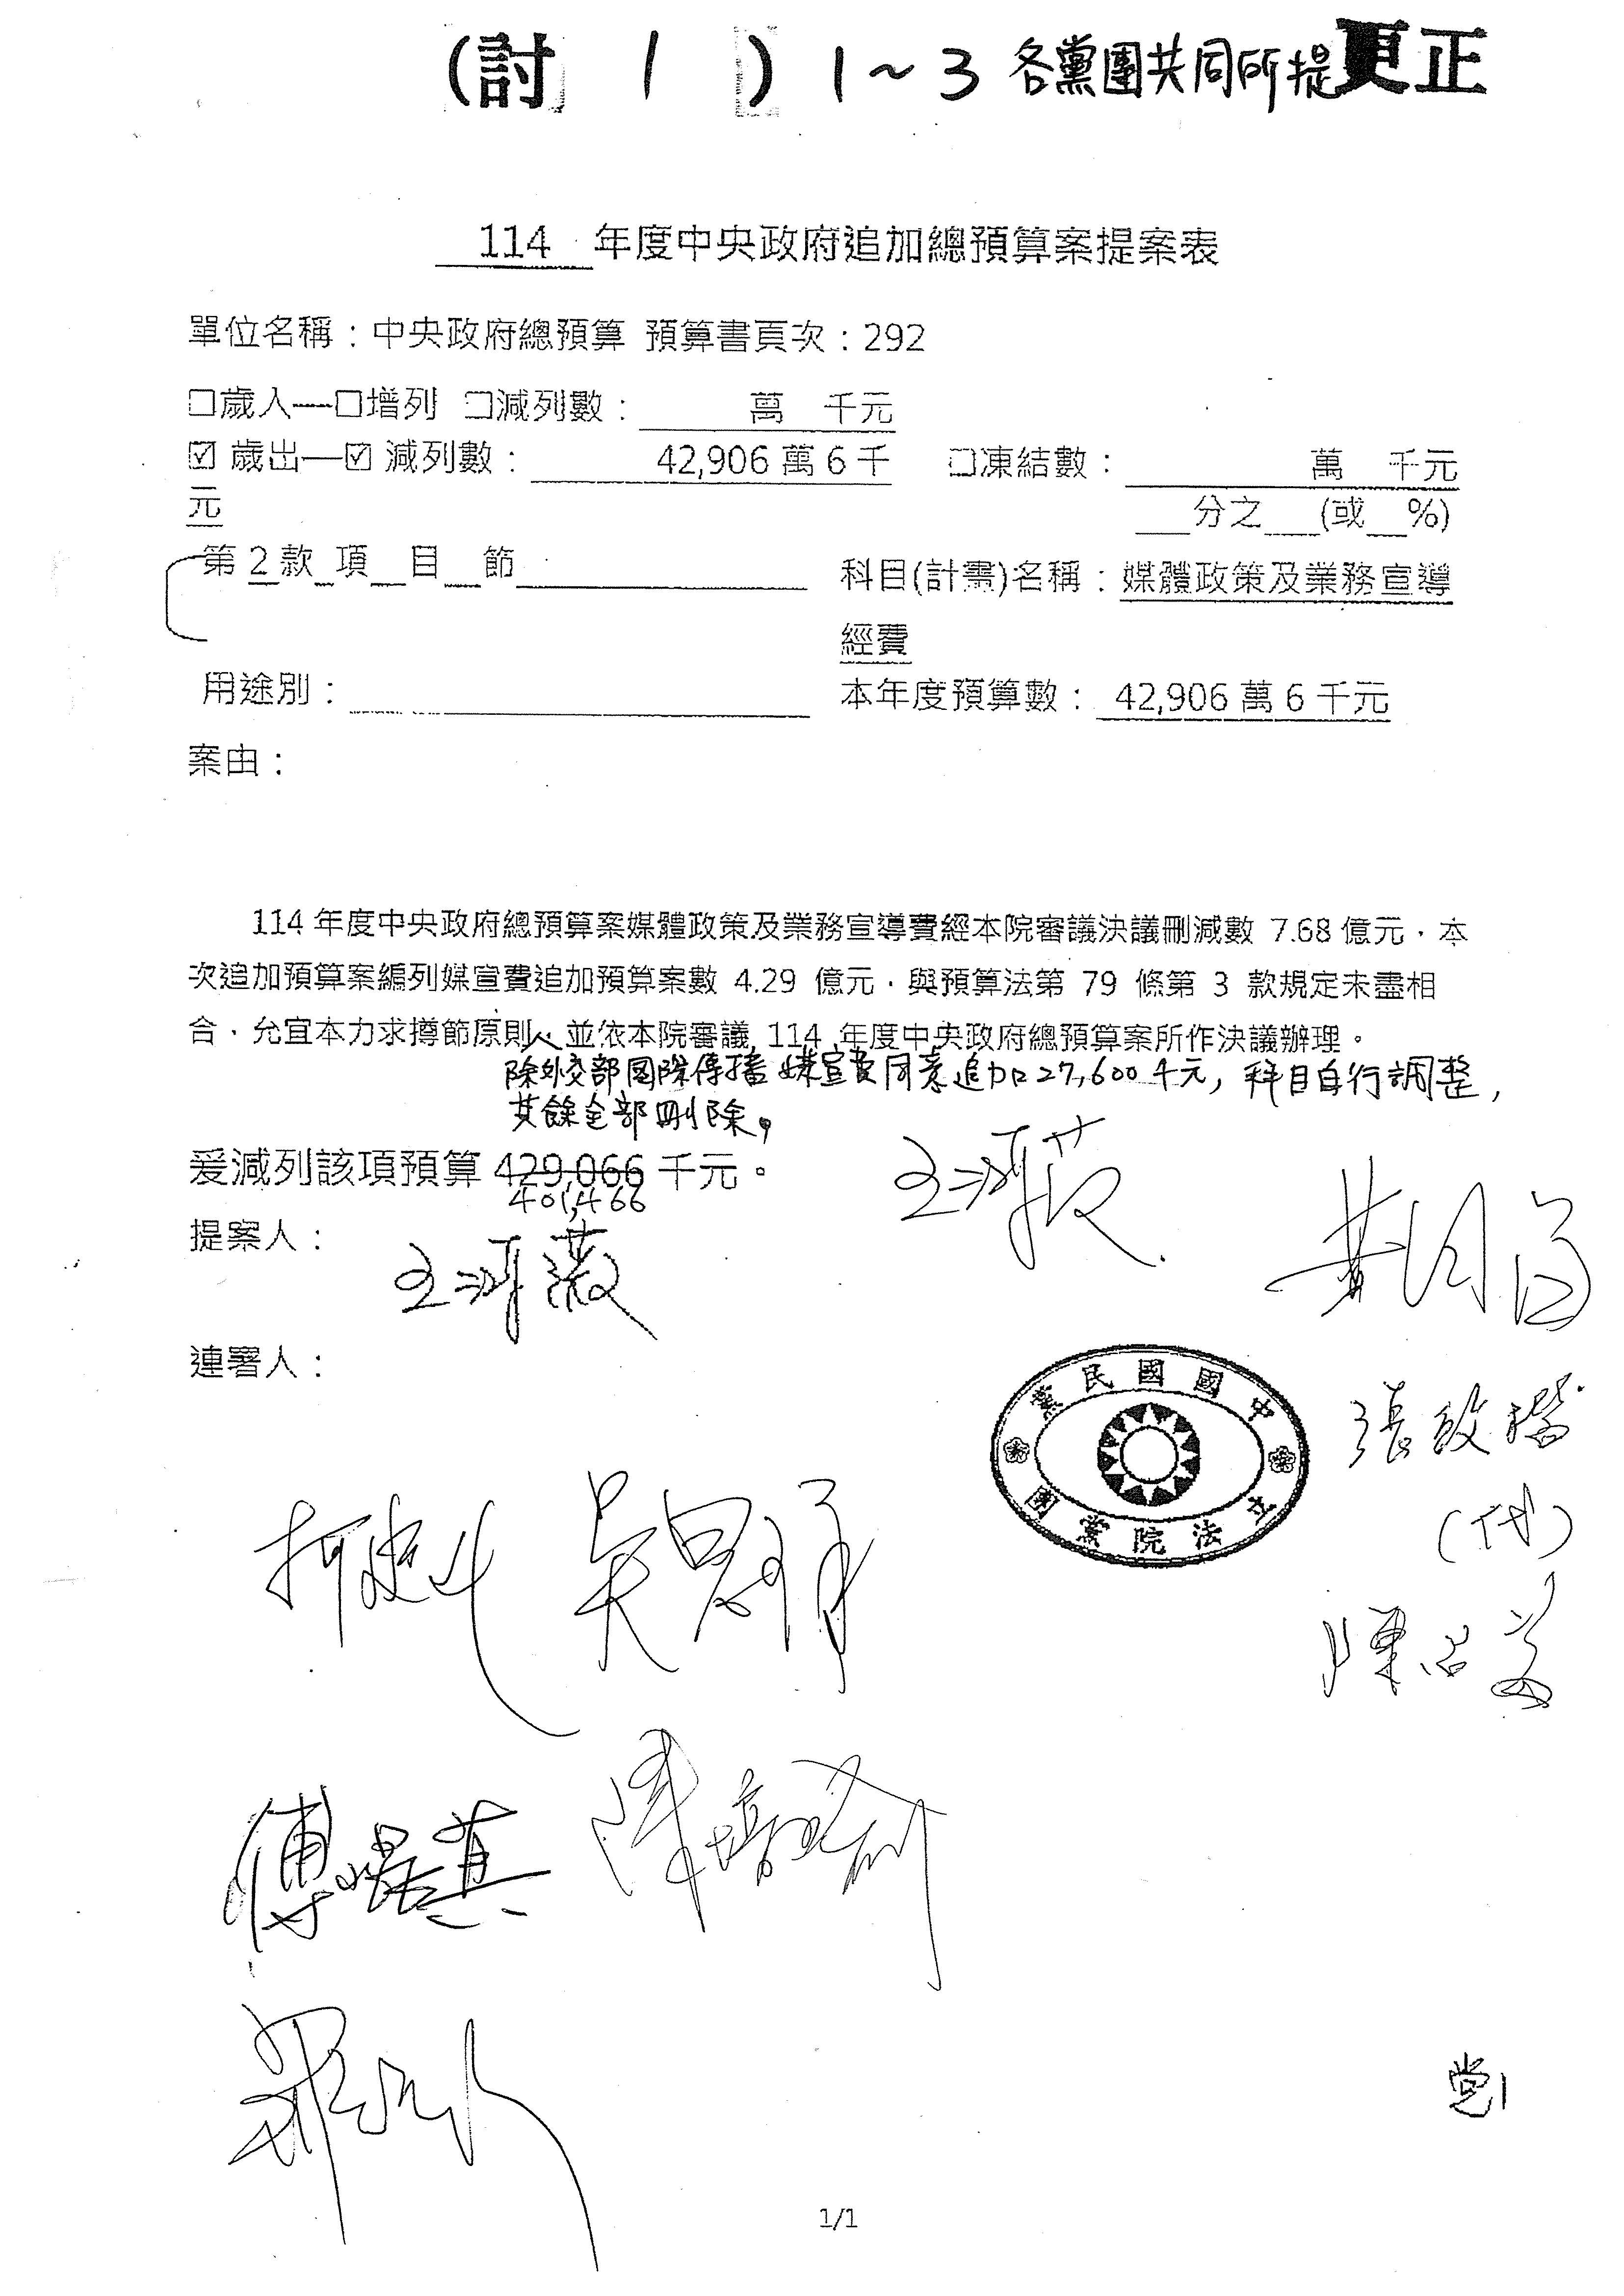 (討 1 ) 1~3 各黨團共同所提更正
114 年度中央政府追加總預算案提案表
單位名稱：中央政府總預算 預算書頁次：292
□歲入—□增列 □減列數： 萬 千元
☑歲出—☑減列數： 42,906萬6千 □凍結數： 萬 千元
元 分之 (或 %)
第2款 項 目 節 科目(計畫)名稱：媒體政策及業務宣導
經費
用途別： 本年度預算數： 42,906萬6千元
案由：
114年度中央政府總預算案媒體政策及業務宣導費經本院審議決議刪減數 7.68 億元，本
次追加預算案編列媒宣費追加預算案數 4.29 億元，與預算法第 79 條第 3 款規定未盡相
合，允宜本力求撙節原則，並依本院審議 114 年度中央政府總預算案所作決議辦理。
除外交部國際傳播媒宣費同意追加27,600千元，科目自行調整，
其餘全部刪除。
爰減列該項預算 429,066 千元。
401,466
提案人：
王鴻薇
王鴻薇
黃國昌
連署人：
中國國民黨
立法院黨團
張啟楷
(代)
柯志恩 吳思瑤
陳培瑜
傅崐萁
党1
1/1